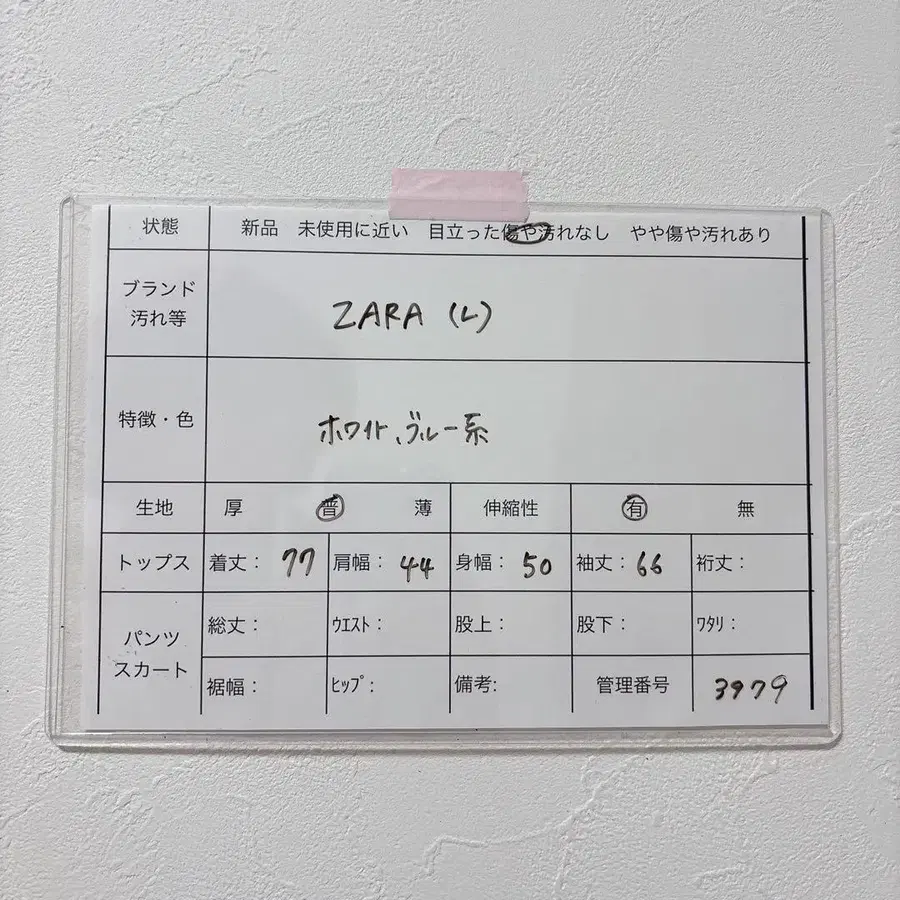 状態 新品 未使用に近い 目立った傷や汚れなし やや傷や汚れあり
ブランド
汚れ等
ZARA (L)
特徴・色 ホワイト、ブルー系
生地 厚 普 薄 伸縮性 有 無
トップス 着丈: 77 肩幅: 44 身幅: 50 袖丈: 66 裄丈:
パンツ
スカート
総丈: ウエスト: 股上: 股下: ワタリ:
裾幅: ヒップ: 備考: 管理番号 3979